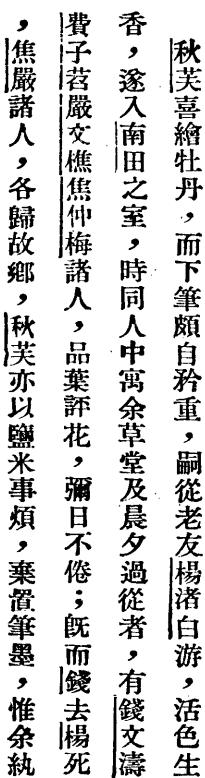 秋芙喜繪牡丹,而下筆頗自矜重,嗣從老友楊渚白游,活色生
香,遂入南田之室,時同人中寓余草堂及晨夕過從者,有錢文濤
費子苕嚴文樵焦仲梅諸人,品葉評花,彌日不倦;旣而錢去楊死
,焦嚴諸人,各歸故鄉,秋芙亦以鹽米事煩,棄置筆墨,惟余紈